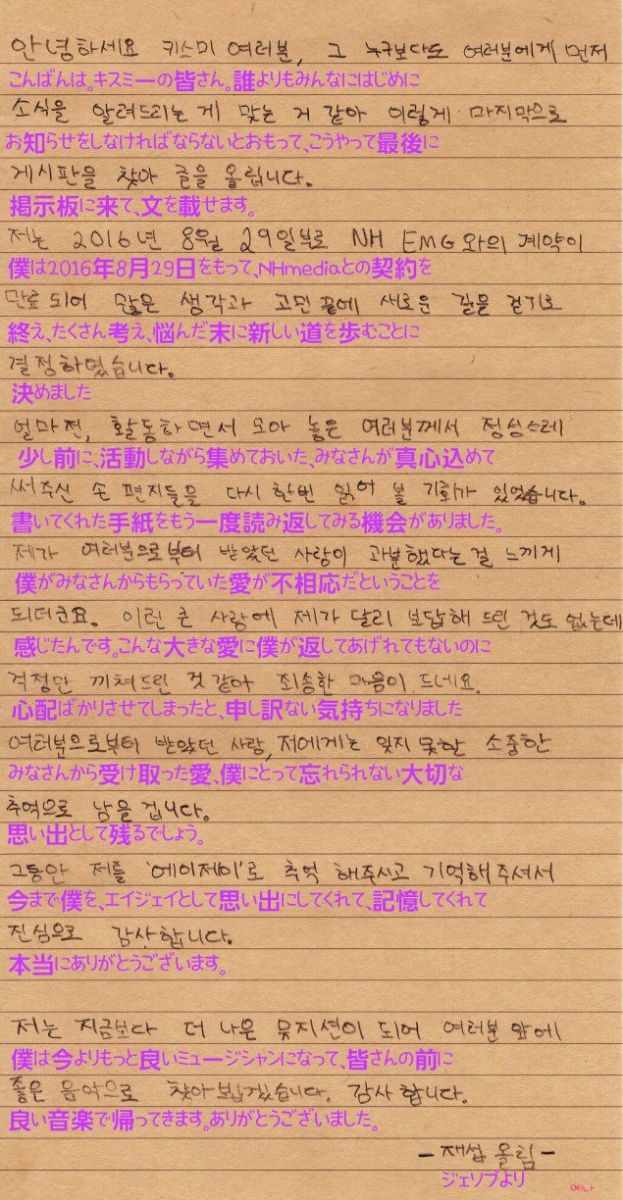 안녕하세요 키스미 여러분, 그 누구보다도 여러분에게 먼저
こんばんは。キスミーの皆さん。誰よりもみんなにはじめに
소식을 알려드리는 게 맞는 거 같아 이렇게 마지막으로
お知らせをしなければならないとおもって、こうやって最後に
게시판을 찾아 글을 올립니다.
掲示板に来て、文を載せます。
저는 2016년 8월 29일부로 NH EMG 와의 계약이
僕は2016年8月29日をもって、NHmediaとの契約を
만료 되어 많은 생각과 고민 끝에 새로운 길을 걷기로
終え、たくさん考え、悩んだ末に新しい道を歩むことに
결정하였습니다.
決めました
얼마전, 활동하면서 모아 놓은 여러분께서 정성스레
少し前に、活動しながら集めておいた、みなさんが真心込めて
써주신 손 편지들을 다시 한번 읽어 볼 기회가 있었습니다.
書いてくれた手紙をもう一度読み返してみる機会がありました。
제가 여러분으로부터 받았던 사랑이 과분했다는걸 느끼게
僕がみなさんからもらっていた愛が不相応だということを
되더군요. 이런 큰 사랑에 제가 달리 보답해 드린 것도 없는데
感じたんです。こんな大きな愛に僕が返してあげれてもないのに
걱정만 끼쳐드린 것 같아 죄송한 마음이 드네요.
心配ばかりさせてしまったと、申し訳ない気持ちになりました
여러분으로부터 받았던 사랑, 저에게는 잊지 못할 소중한
みなさんから受け取った愛、僕にとって忘れられない大切な
추억으로 남을 겁니다.
思い出として残るでしょう。
그동안 저를 '에이제이'로 추억 해주시고 기억해 주셔서
今まで僕を、エイジェイとして思い出にしてくれて、記憶してくれて
진심으로 감사합니다.
本当にありがとうございます。
저는 지금보다 더 나은 뮤지션이 되어 여러분 앞에
僕は今よりもっと良いミュージシャンになって、皆さんの前に
좋은 음악으로 찾아 뵙겠습니다. 감사합니다.
良い音楽で帰ってきます。ありがとうございました。
- 재섭 올림 -
ジェソプより